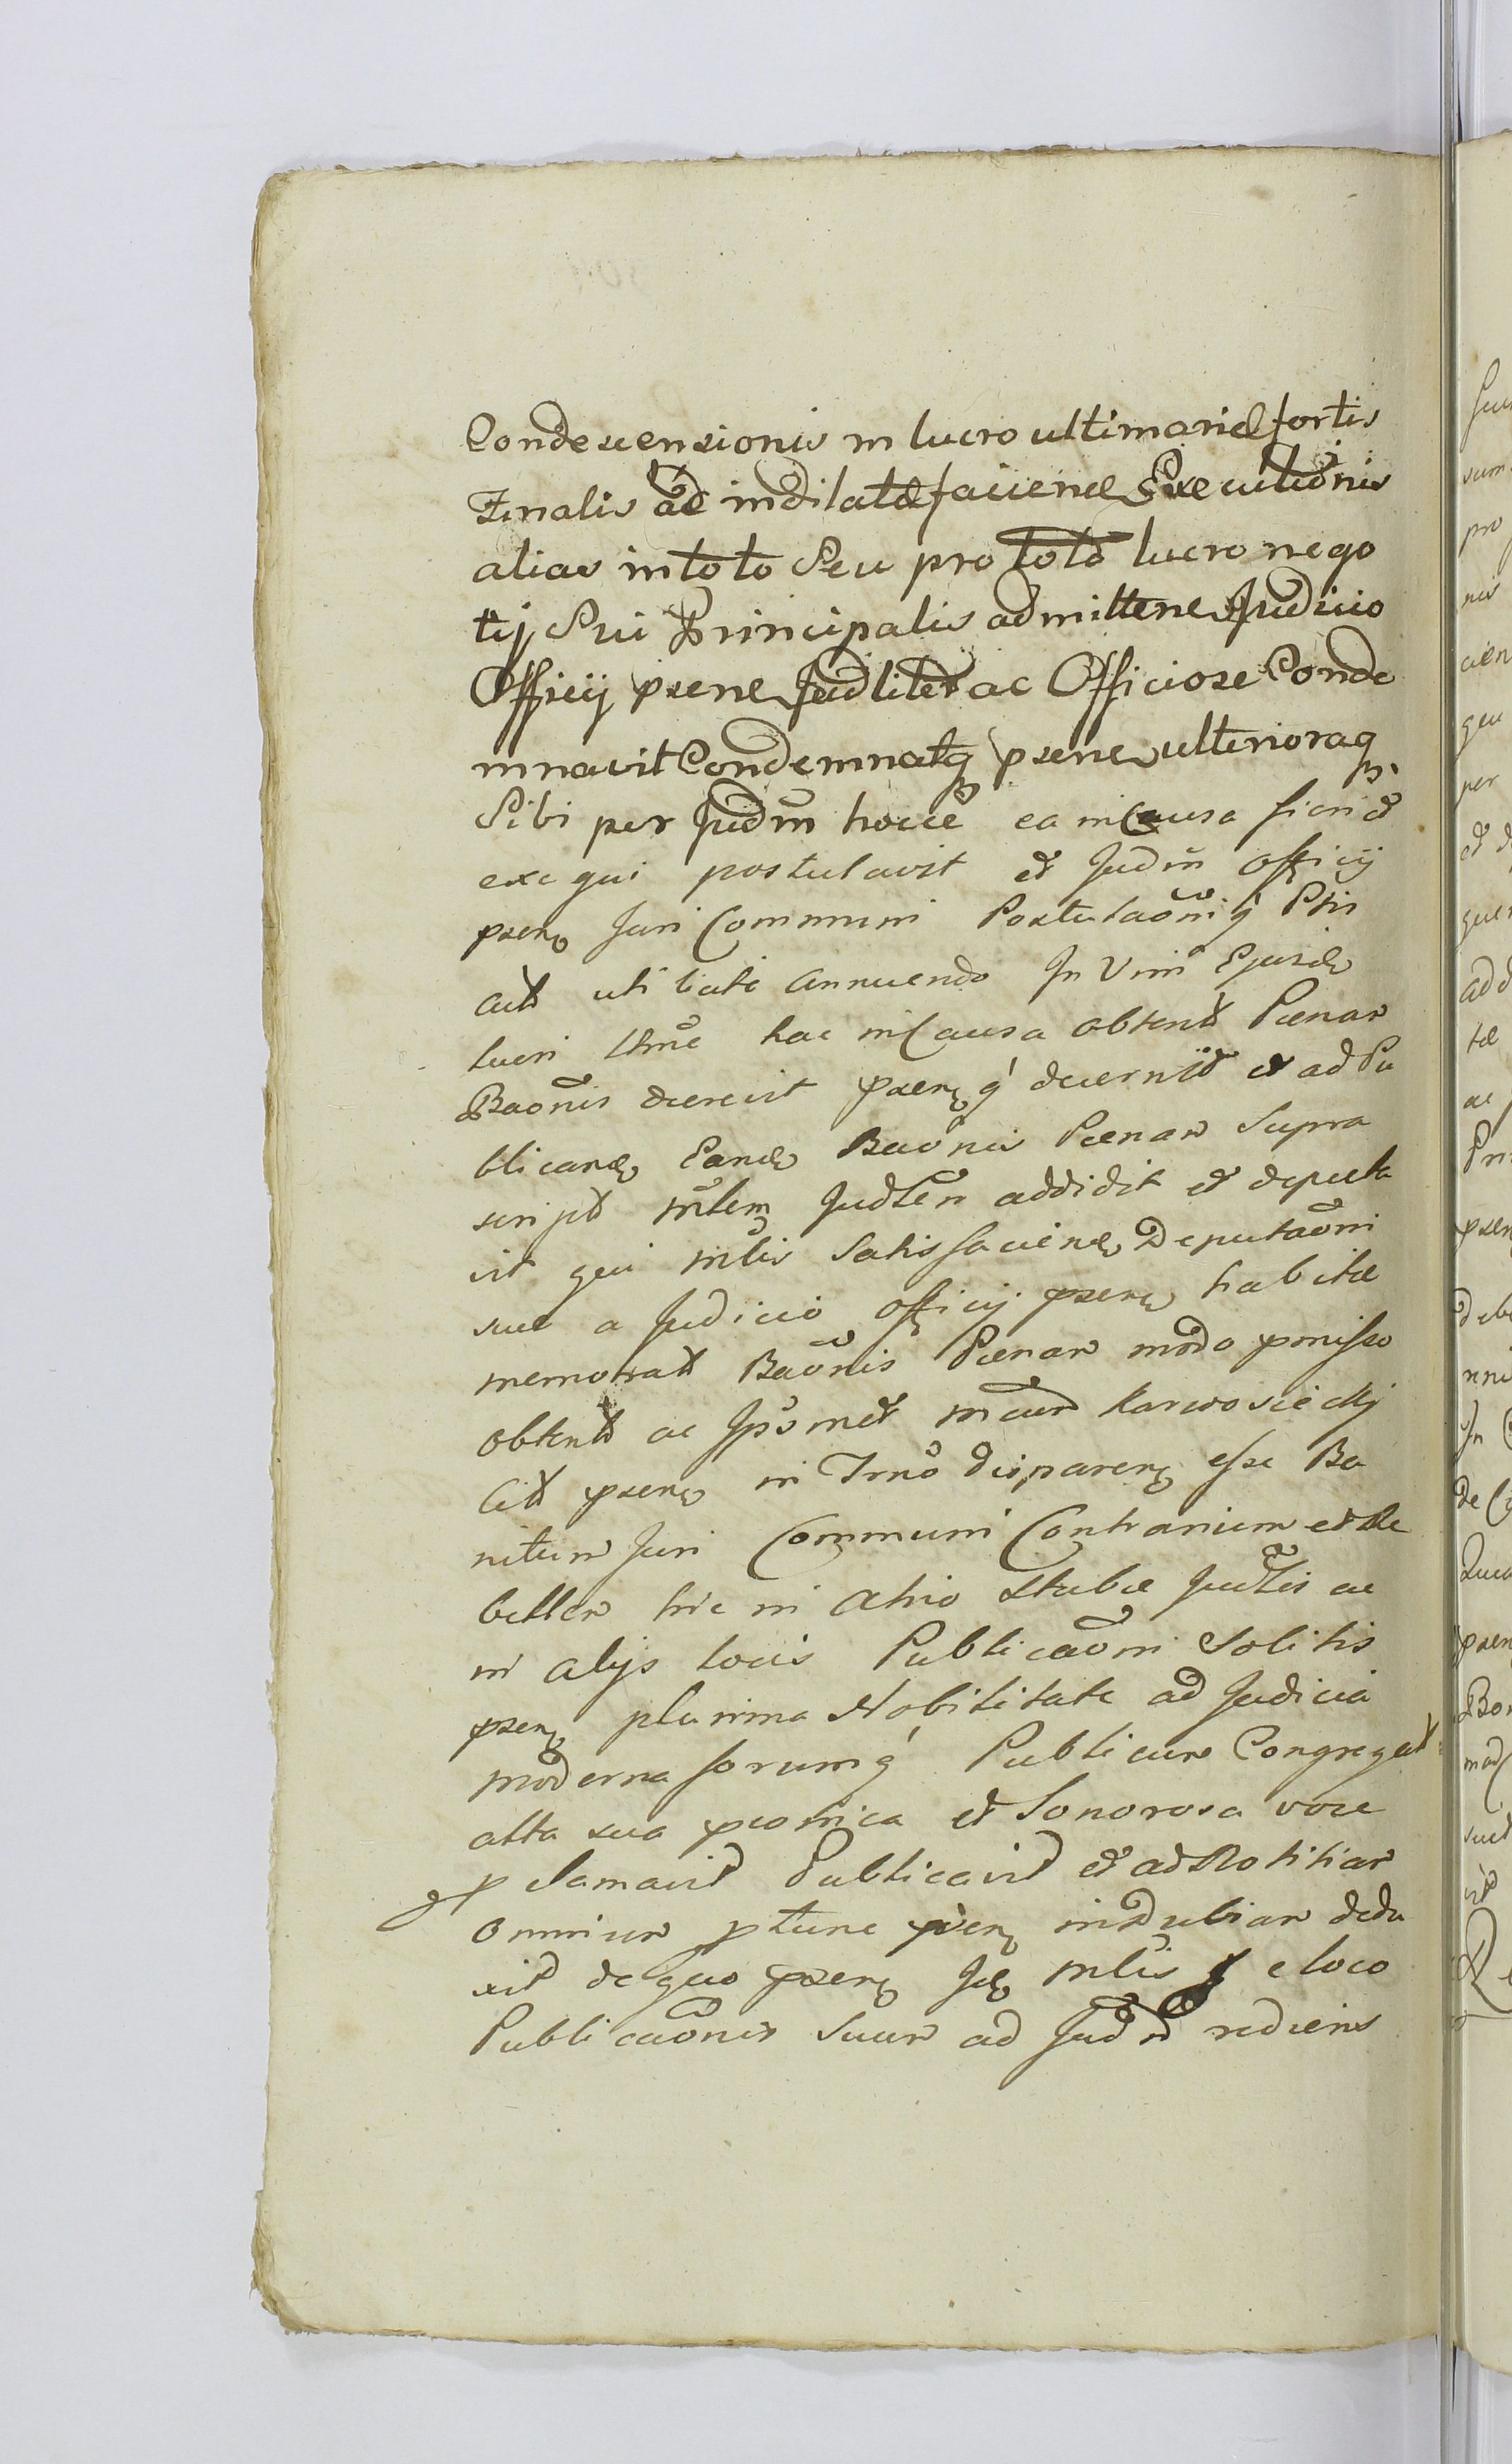 Condescensionis in lucro ultimariæ fortis
Finalis ac indilatæ faciene Executionis
alias in toto Seu pro toto lucro nego
tij Sui Principalis admittene Judicio
Officij psene Judliter ac Officiose Conde
mnavit Condemnatq psene ulterioraq
Sibi per Judm hocce ea in Causa fieri et
exequi postulavit et Judm Officij
psen Juri Communi Postulaoniq Ptis
Act uti Late annuendo In Vim Ejusd
lucri hac in Causa obtent Pœnam
Baonis decrevit psenq decernit et ad Pu
blicand Eand Baonis Pœnam Supra
script mlem Judlem addidit et deputa
vit qui mlis Satisfaciend Deputaoni
suæ a Judicio Officij psen habitæ
memorat Baonis Pœnam modo pmisso
obtent ac Ipsmet mcum Karwosiecki
Cit psen in Trno disparen esse Ba
nitum Juri Communi Contrarium et Re
bellem hic in Atrio Stubæ Judlis ac
in alijs locis Publicaoni Solitis
psen plurima Nobilitate ad Judicia
moderna forumq Publicum Congregat
alta sua pconica et Sonorosa voce
pclamavit Publicavit et ad Notitiam
omnium ptunc psen indubiam dedu
xit de quo psen Id mlis e loco
Publicaonis Suum ad Judm rediens